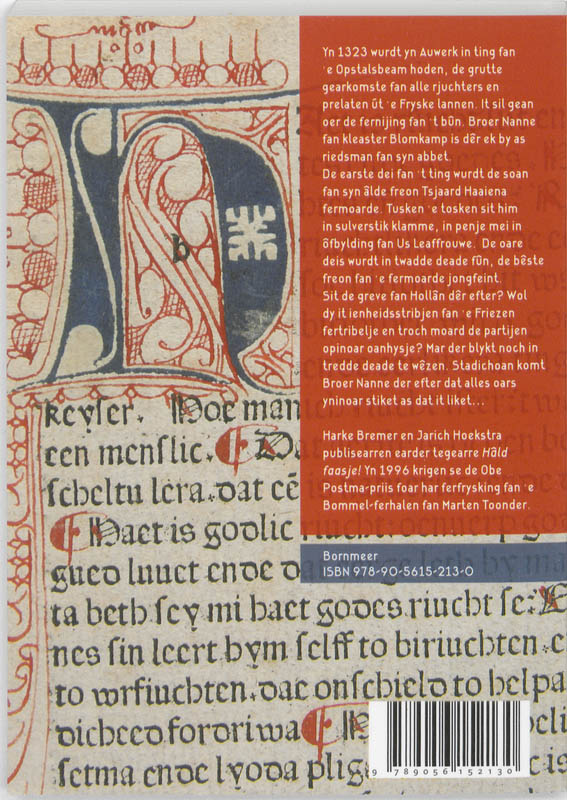 Yn 1323 wurdt yn Auwerk in ting fan
'e Opstalsbeam hoden, de grutte
gearkomste fan alle rjuchters en
prelaten út 'e Fryske lannen. It sil gean
oer de fernijing fan 't bûn. Broer Nanne
fan kleaster Blomkamp is dêr ek by as
riedsman fan syn abbet.
De earste dei fan 't ting wurdt de soan
fan syn âlde freon Tsjaard Haaiena
fermoarde. Tusken 'e tosken sit him
in sulverstik klamme, in penje mei in
ôfbylding fan Us Leaffrouwe. De oare
deis wurdt in twadde deade fûn, de bêste
freon fan 'e fermoarde jongfeint.
Sit de greve fan Hollân dêr efter? Wol
dy it ienheidsstribjen fan 'e Friezen
fertribelje en troch moard de partijen
opinoar oanhysje? Mar der blykt noch in
tredde deade te wêzen. Stadichoan komt
Broer Nanne der efter dat alles oars
yninoar stiket as dat it liket...
Harke Bremer en Jarich Hoekstra
publisearren earder tegearre Hâld
faasje! Yn 1996 krigen se de Obe
Postma-priis foar har ferfrysking fan 'e
Bommel-ferhalen fan Marten Toonder.
Bornmeer
ISBN 978-90-5615-213-0
b
keyser. Hoe man
een menslic. Da
scheltu lera. dat cē
Haet is godlic riucht
gued luuct ende da
ta beth sey mi haet godes riucht se:
nes sin leert hym selff to biriuchten.
to wrfiuchten. dat onschield to helpa
dicheed fordriwa
setma ende lyoda plig
9 789056 152130